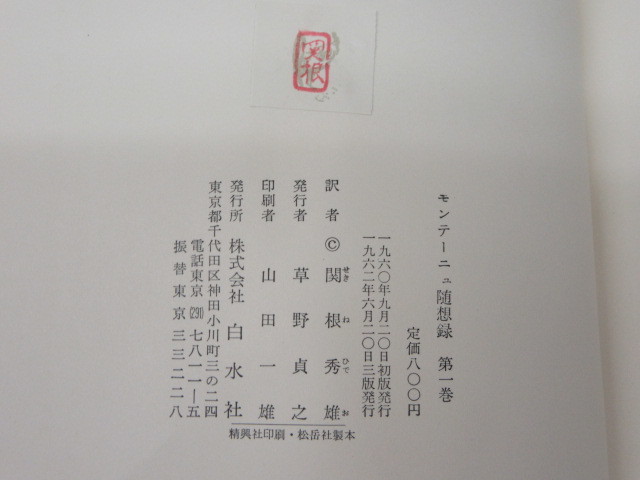 関根
モンテーニュ随想録 第一巻
定価八〇〇円
一九六〇年九月二〇日初版発行
一九六二年六月二〇日三版発行
訳者 © 関根秀雄
せき ね ひで お
発行者 草野貞之
印刷者 山田一雄
発行所 株式会社 白水社
東京都千代田区神田小川町三の二四
電話東京(291)七八一一―五
振替東京三三二二八
精興社印刷・松岳社製本